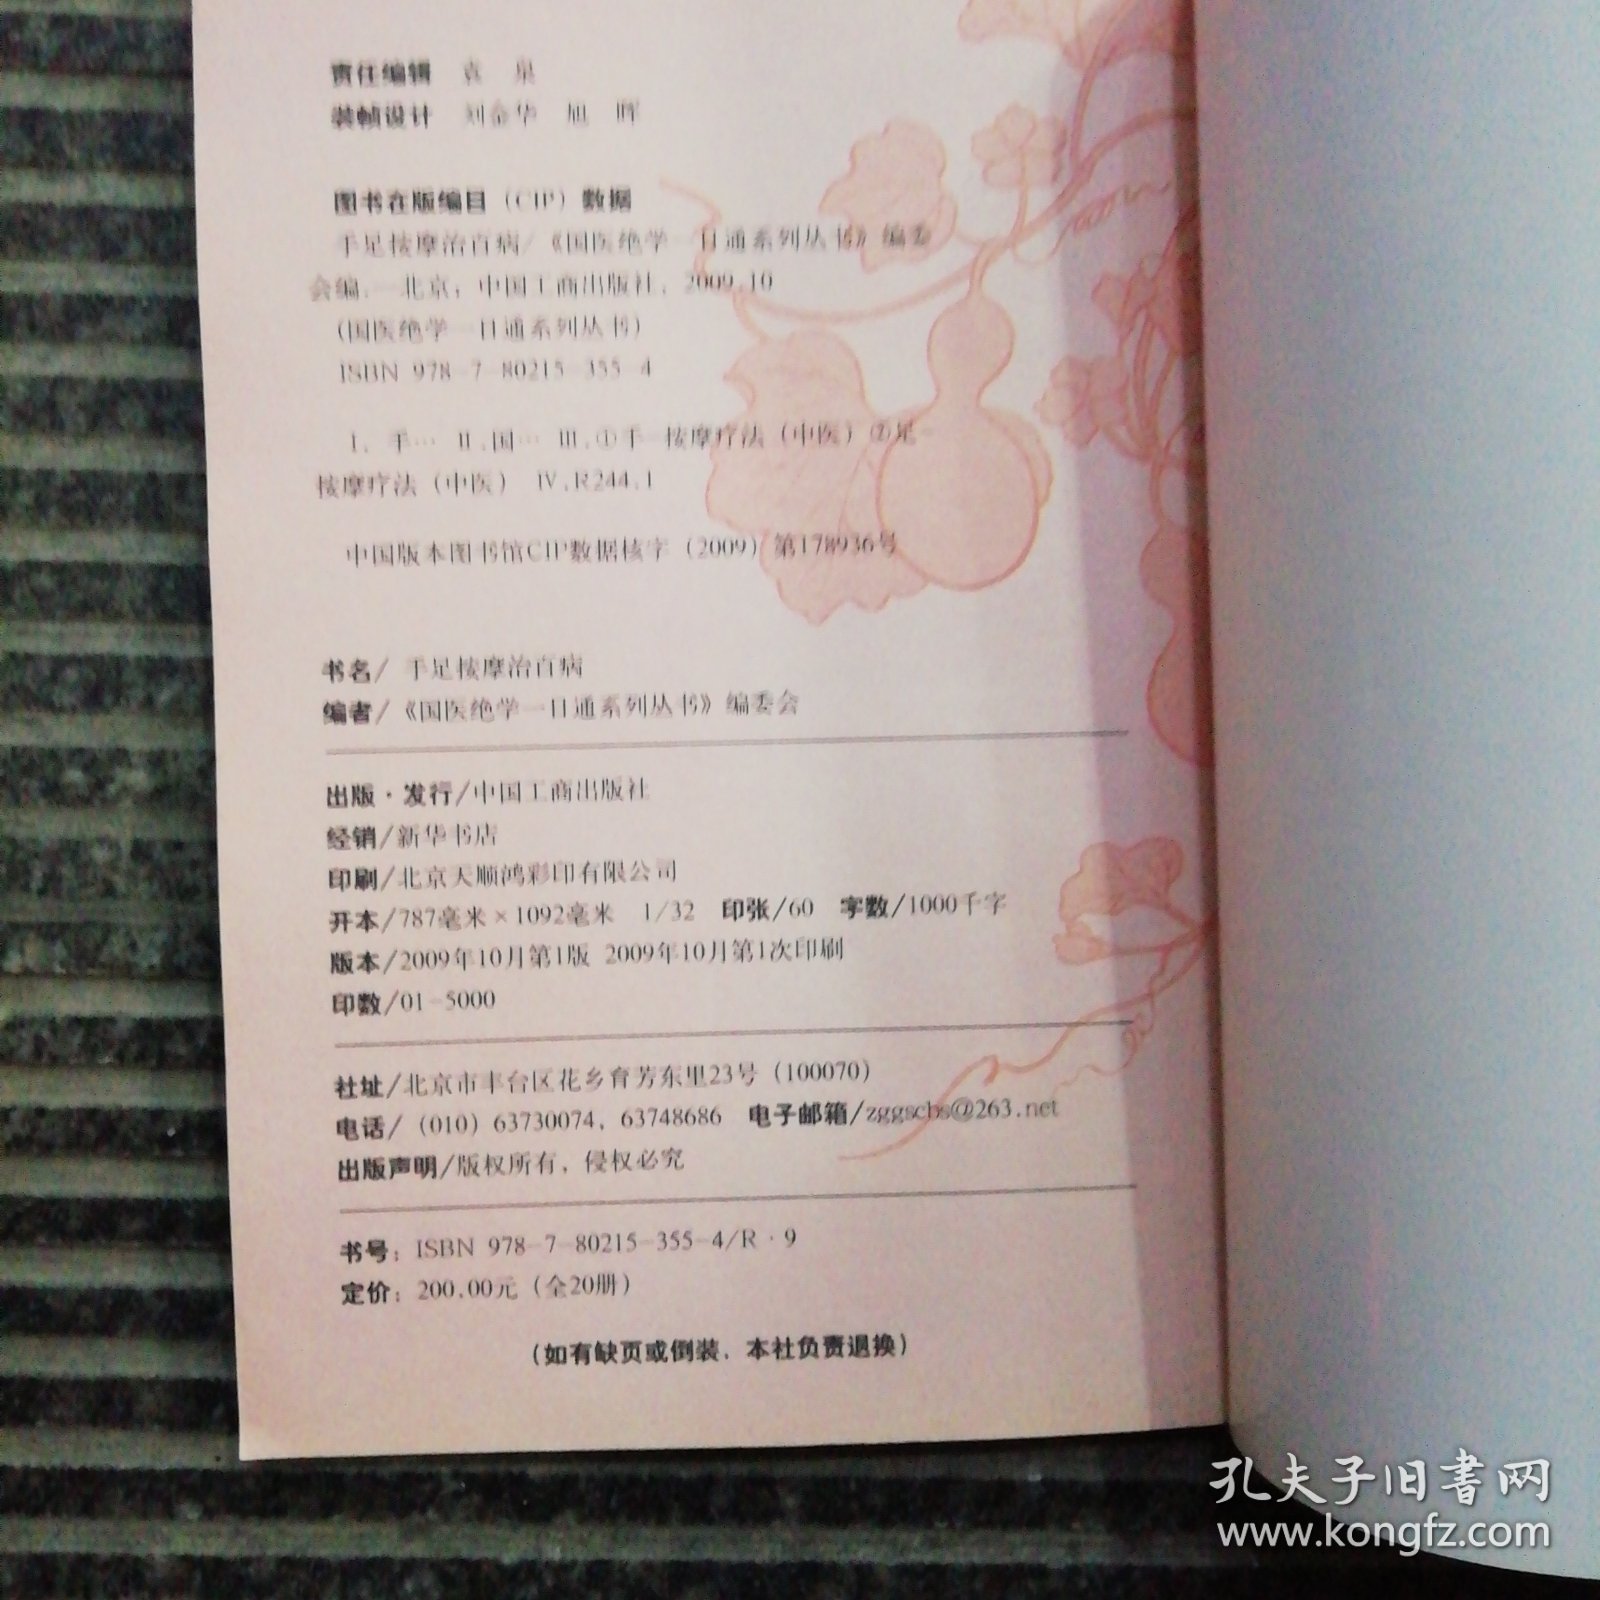 责任编辑 袁 泉
装帧设计 刘金华 旭 晖
图书在版编目（CIP）数据
手足按摩治百病/《国医绝学一日通系列丛书》编委
会编. —北京：中国工商出版社，2009.10
（国医绝学一日通系列丛书）
ISBN 978-7-80215-355-4
Ⅰ. 手… Ⅱ.国… Ⅲ.①手—按摩疗法（中医）②足—
按摩疗法（中医） Ⅳ.R244.1
中国版本图书馆CIP数据核字（2009）第178936号
书名/ 手足按摩治百病
编者/《国医绝学一日通系列丛书》编委会
出版·发行/中国工商出版社
经销/新华书店
印刷/北京天顺鸿彩印有限公司
开本/787毫米×1092毫米 1/32 印张/60 字数/1000千字
版本/2009年10月第1版 2009年10月第1次印刷
印数/01-5000
社址/北京市丰台区花乡育芳东里23号（100070）
电话/（010）63730074，63748686 电子邮箱/zggscbs@263.net
出版声明/版权所有，侵权必究
书号：ISBN 978-7-80215-355-4/R·9
定价：200.00元（全20册）
（如有缺页或倒装，本社负责退换）
孔夫子旧书网
www.kongfz.com